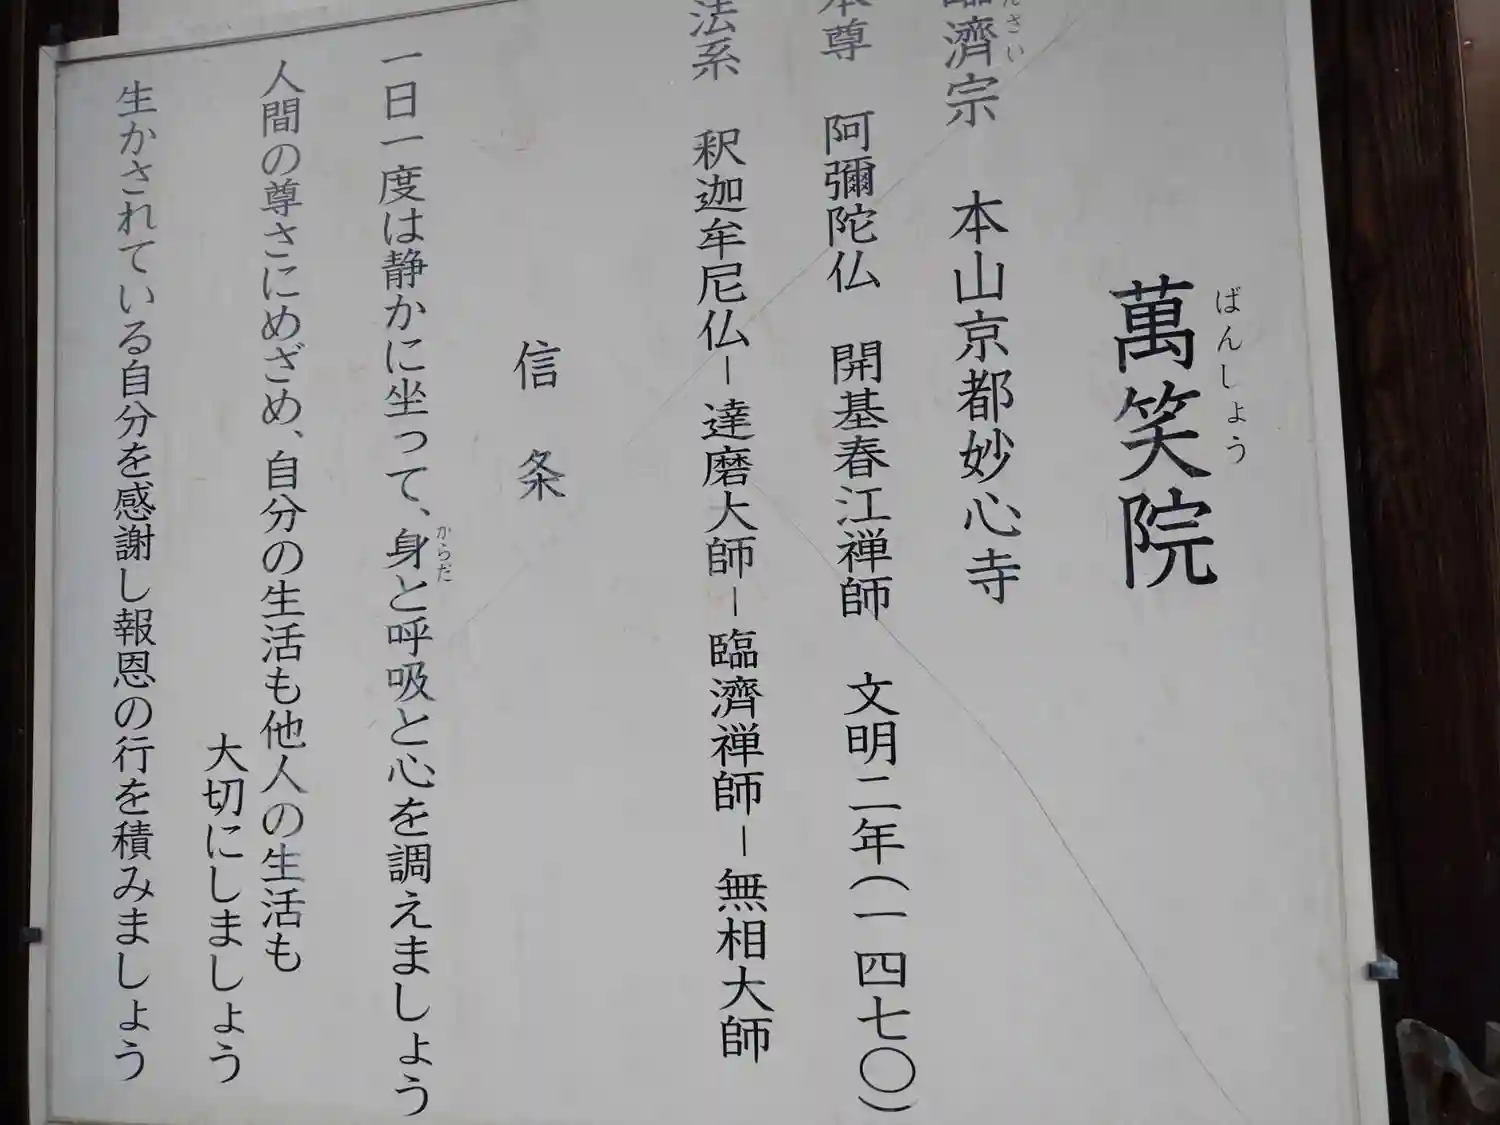 萬笑院
ばんしょう
臨濟宗 本山京都妙心寺
んさい
本尊 阿彌陀仏 開基春江禅師 文明二年(一四七〇)
法系 釈迦牟尼仏ー達磨大師ー臨濟禅師ー無相大師
信条
一日一度は静かに坐って、身と呼吸と心を調えましょう
からだ
人間の尊さにめざめ、自分の生活も他人の生活も
大切にしましょう
生かされている自分を感謝し報恩の行を積みましょう